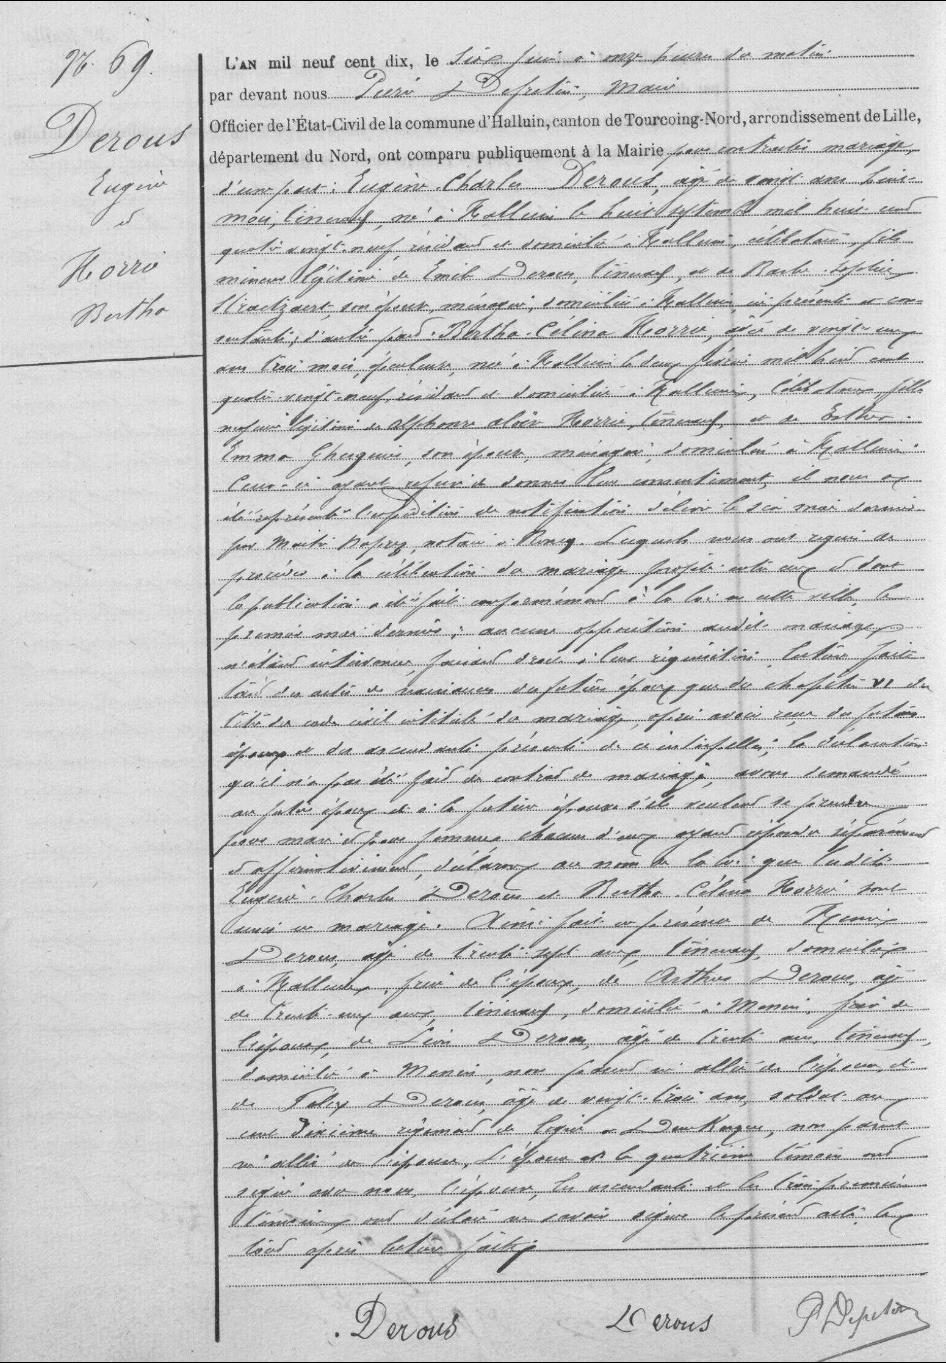 N° 69.
Derous
Eugène
et
Horrie
Bertha
L'AN mil neuf cent dix, le six juin à onze heures du matin
par devant nous Pierre Defretin, Maire
Officier de l'État-Civil de la commune d'Halluin, canton de Tourcoing-Nord, arrondissement de Lille,
département du Nord, ont comparu publiquement à la Mairie pour contracter mariage,
d'une part: Eugène Charles Derous, âgé de vingt ans huit
mois, tisserand, né à Halluin le huit septembre mil huit cent
quatre vingt-neuf, résidant et domicilié à Halluin, célibataire, fils
mineur légitime de Emile Derous, tisserand, et de Barbe Sophie
son épouse, ménagère, domiciliés à Halluin, ici présents et con-
sentants; d'autre part Bertha Célina Horrie, âgée de vingt-un
ans trois mois, née à Halluin le deux mil huit cent
quatre vingt-neuf, résidant et domiciliée à Halluin, célibataire, fille
majeure légitime de Alphonse Horrie, tisserand, et de Esther
Emma son épouse, ménagère, domiciliés à Halluin
Ceux-ci ayant refusé de donner leur consentement, il nous a
été représenté l'expédition de notification délivrée le six mai dernier
par Maître notaire à Roncq. Lesquels nous ont requis de
procéder à la célébration du mariage projeté entre eux et dont
la publication a été faite conformément à la loi en cette ville le
premier mai dernier; aucune opposition audit mariage
n'étant intervenue, faisant droit à leur réquisition, lecture faite
tant des actes de naissances des futurs époux que du chapitre VI du
titre du code civil intitulé du mariage, après avoir reçu des futurs
époux et des ascendants présents de ce interpellés, la déclaration
qu'il n'a pas été fait de contrat de mariage, avons demandé
au futur époux et à la future épouse s'ils veulent se prendre
pour mari et pour femme, chacun d'eux ayant répondu séparément
et affirmativement, déclarons au nom de la loi que lesdits
Eugène Charles Derous et Bertha Célina Horrie sont
unis en mariage. Ainsi fait en présence de Henri
Derous, âgé de trente sept ans, tisserand, domicilié
à Halluin, frère de l'époux, de Arthur Derous, âgé
de trente-un ans, tisserand, domicilié à Menin, frère de
l'époux, de Léon Derous, âgé de trente ans, tisserand,
domicilié à Menin, non parent ni allié de l'épouse, et
de Félix Derous, âgé de vingt-trois ans, soldat au
cent dixième régiment de ligne à Dunkerque, non parent
ni allié de l'épouse. L'époux et le quatrième témoin ont
signé avec nous, l'épouse, les ascendants et les trois premiers
témoins ont déclaré ne savoir signer le présent acte, le
tout après lecture faite.
Derous
Derous
P Defretin